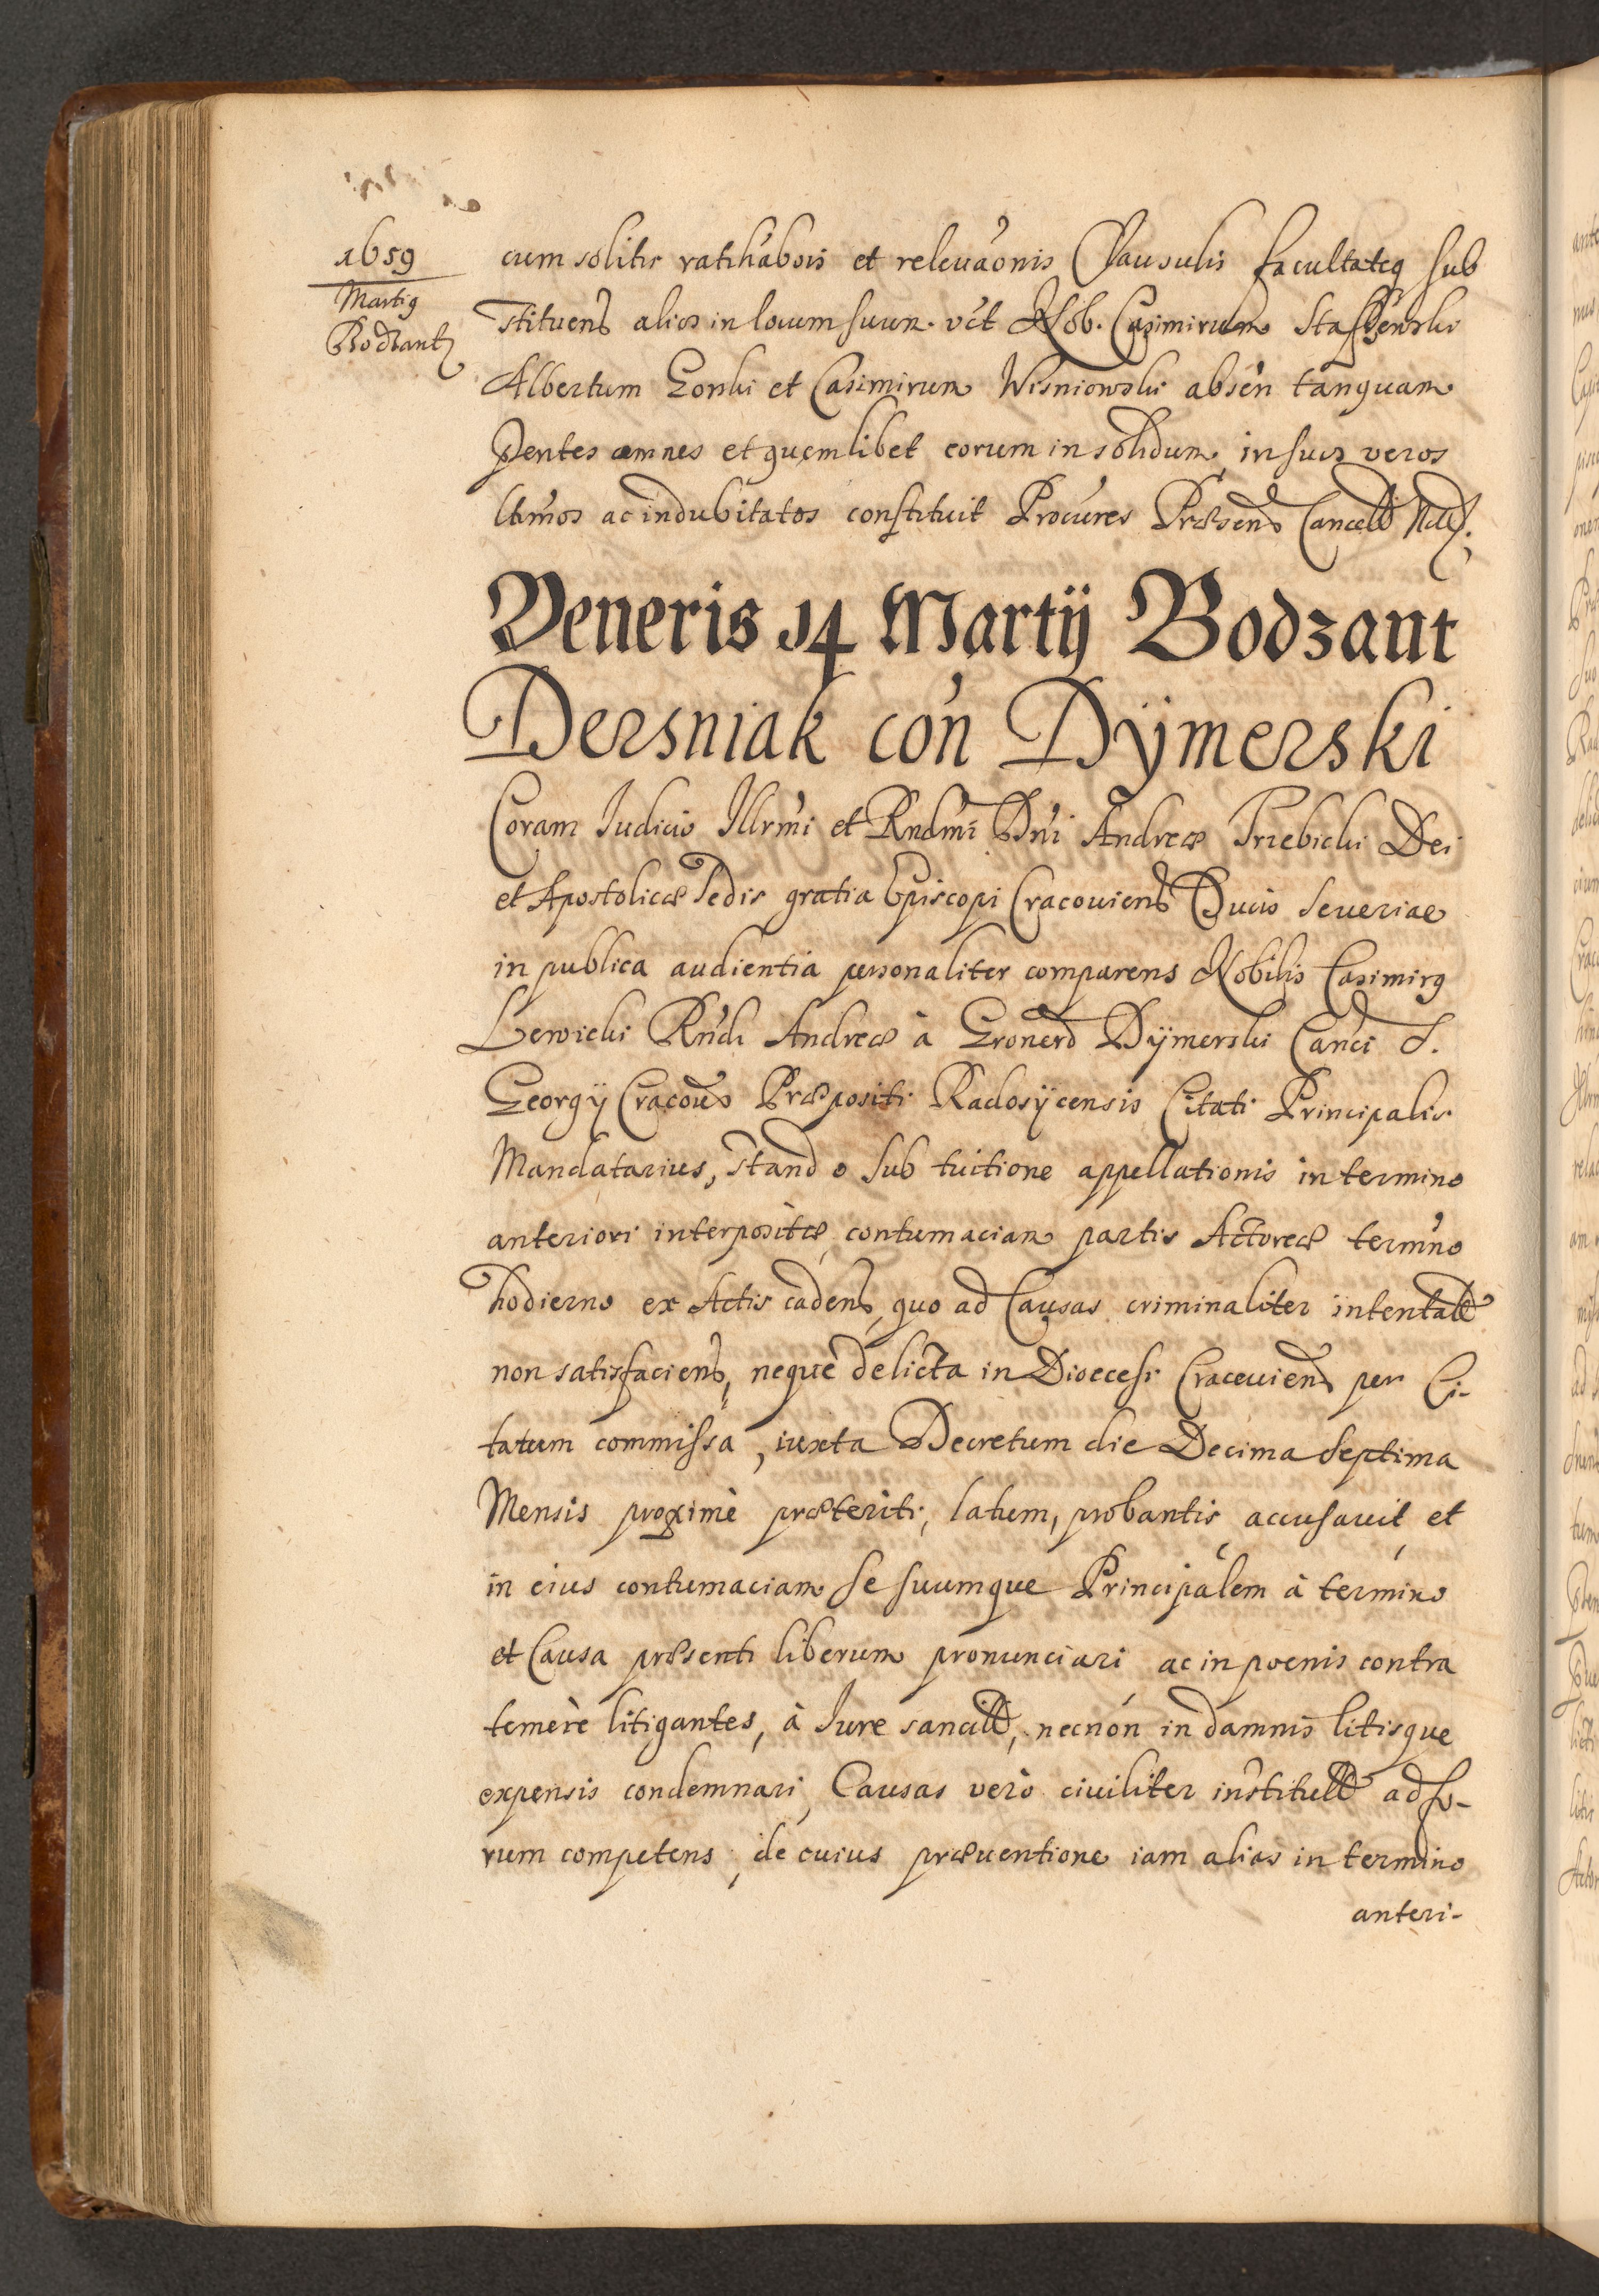 1659
Martiq
Bodzantz
cum solitis ratihab́ois et releuáonis Clausulis facultateq sub
stituend alios in locum suum. vc̃t Nob. Casimirum
Albertum Gonki et Casimirum Wisniowski absén tanquam
Pentes omnes et quemlibet eorum in solidum, in suos veros
ltimos ac indubitatos constituit Procúres Præsend Cancell
Veneris 14 Martij Bodzant
Dersniak con Dÿmerski
Coram Iudicio Illrmi et Rndmi Dni Andreæ Trzebicki Dei
et Apostolicæ Sedis gratia Episcopi Cracouiens Ducis Seueriae
in publica audientia personaliter comparens Nobilis Casimirq
Lewicki Rndi Andreæ à Dÿmerski Canci S.
Georgÿ Cracou Præpositi Radosÿcensis Citati Principalis
Mandatarius, stando sub tuitione appellationis in termino
anteriori interpositæ, contumaciam partis Actoreæ termino
hodierno ex Actis cadens, quo ad Causas criminaliter intentatt
non satisfaciens, neque delicta in Dioecesi Cracouiens per Ci-
tatum commissa, iuxta Decretum die Decima Septima
Mensis proximè præteriti, latum, probantis, accusauit, et
in eius contumaciam se suumque Principalem à termino
et Causa præsenti liberum pronunciari ac in poenis contra
temerè litigantes, à Iure sancitt, necnón in damnis litisque
expensis condemnari, Causas verò ciuiliter institutt ad fo-
rum competens, de cuius præuentione iam alias in termino
anteri-